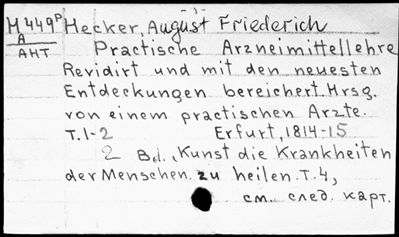 M 449ᵖ Hecker, August Friederich
A
АНТ Practische Arzneimittellehre
Revidirt und mit den neuesten
Entdeckungen bereichert. Hrsg.
von einem practischen Arzte.
T.1-2 Erfurt, 1814-15
2 Bd. „Kunst die Krankheiten
der Menschen zu heilen. T.4,
см. след. карт.